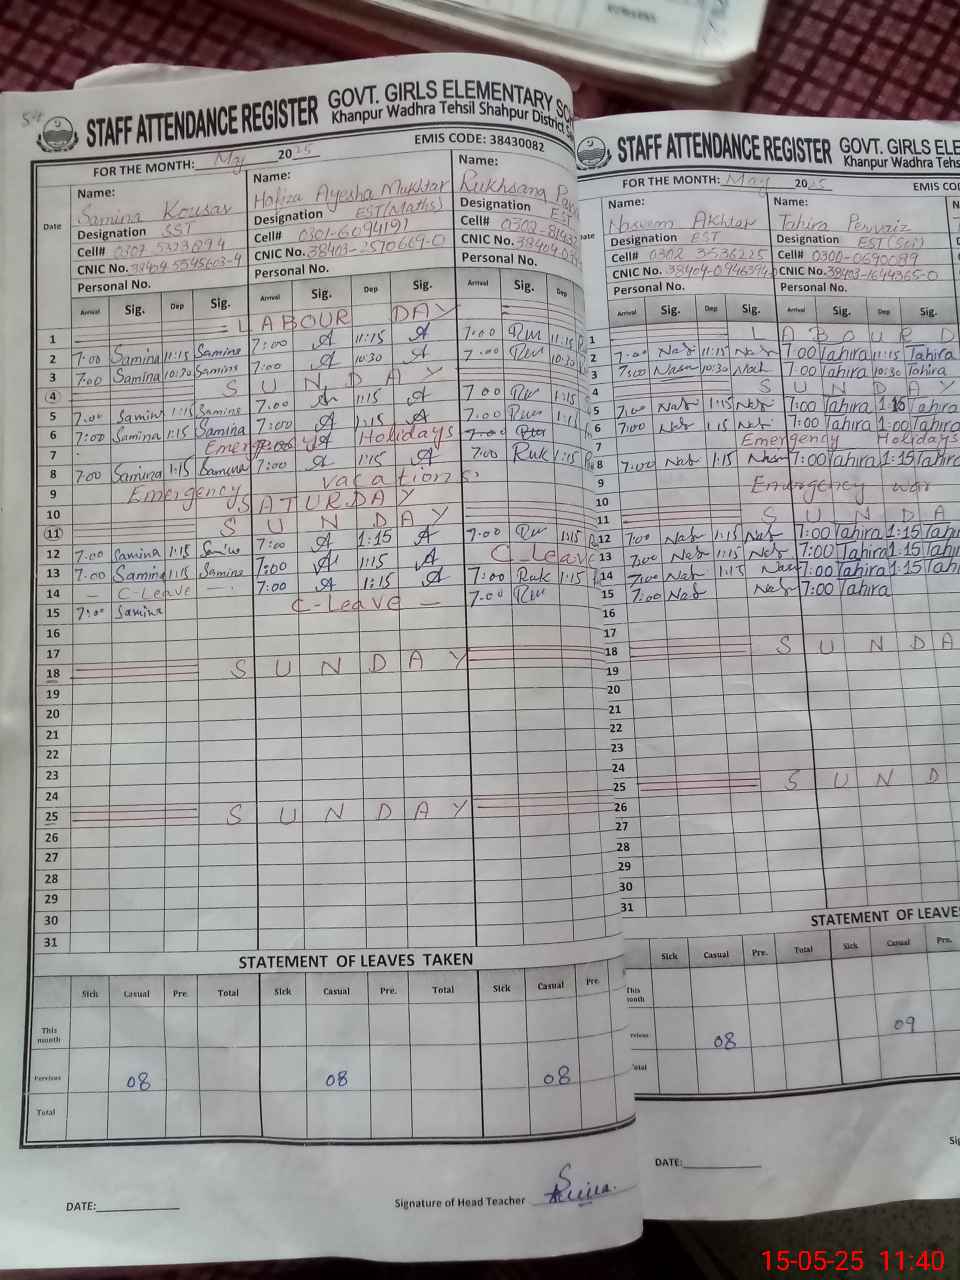 54
STAFF ATTENDANCE REGISTER GOVT. GIRLS ELEMENTARY
Khanpur Wadhra Tehsil Shahpur District
FOR THE MONTH: May 2025 EMIS CODE: 38430082
Date
Name: Name: Name:
Samina Kousar Hafiza Ayesha Mukhtar Rukhsana
Designation SST Designation EST(Maths) Designation EST
Cell# Cell# 0301-6094191 Cell#
CNIC No. 38404-5545603-4 CNIC No. 38403-2570669-0 CNIC No.
Personal No. Personal No. Personal No.
Arrival Sig. Dep Sig. Arrival Sig. Dep Sig. Arrival Sig. Dep
1 LABOUR DAY
2 7:00 Samina 11:15 Samina 7:00 A 11:15 A 7:00 Rw 11:15
3 7:00 Samina 10:30 Samina 7:00 A 10:30 A 7:00 Rw 10:30
4 SUNDAY
5 7:00 Samina 1:15 Samina 7:00 A 1:15 A 7:00 Rw 1:15
6 7:00 Samina 1:15 Samina 7:00 A 1:15 A 7:00 Rw 1:1
7 Emergency Holidays
8 7:00 Samina 1:15 Samina 7:00 A 1:15 A 7:00 Ruk 1:15
9 Emergency vacations.
10 SATURDAY
11 SUNDAY
12 7:00 Samina 1:15 Samina 7:00 A 1:15 A 7:00 Rw 1:15
13 7:00 Samina 1:15 Samina 7:00 A 1:15 A C-Leave
14 – C-Leave – 7:00 A 1:15 A 7:00 Ruk 1:15
15 7:00 Samina C-Leave – 7:00 Rw
16
17
18 SUNDAY
19
20
21
22
23
24
25 SUNDAY
26
27
28
29
30
31
STATEMENT OF LEAVES TAKEN
Sick Casual Pre. Total Sick Casual Pre. Total Sick Casual Pre.
This month
Pervious 08 08 08
Total
DATE: Signature of Head Teacher
STAFF ATTENDANCE REGISTER GOVT. GIRLS ELE
Khanpur Wadhra Tehs
FOR THE MONTH: May 2025 EMIS CO
Name: Name:
Naseem Akhtar Tahira Pervaiz
Designation EST Designation EST(Sci)
Cell# 0302 3536225 Cell# 0300-0690089
CNIC No. CNIC No. 38403-1644365-0
Personal No. Personal No.
Arrival Sig. Dep Sig. Arrival Sig. Dep Sig.
1 LABOUR D
2 7:00 Nas 11:15 Nas 7:00 Tahira 11:15 Tahira
3 7:00 Nas 10:30 Nas 7:00 Tahira 10:30 Tahira
SUNDAY
5 7:00 Nas 1:15 Nas 7:00 Tahira 1:15 Tahira
6 7:00 Nas 1:15 Nas 7:00 Tahira 1:00 Tahira
7 Emergency Holidays
8 7:00 Nas 1:15 Nas 7:00 Tahira 1:15 Tahira
9 Emergency war
10
11 SUNDA
12 7:00 Nas 1:15 Nas 7:00 Tahira 1:15 Tahira
13 7:00 Nas 1:15 Nas 7:00 Tahira 1:15 Tahira
14 7:00 Nas 1:15 Nas 7:00 Tahira 1:15 Tahi
15 7:00 Nas Nas 7:00 Tahira
16
17
18 SUNDA
19
20
21
22
23
24
25 SUND
26
27
28
29
30
31
STATEMENT OF LEAVES
Sick Casual Pre. Total Sick Casual Pre.
08 09
DATE:
15-05-25 11:40